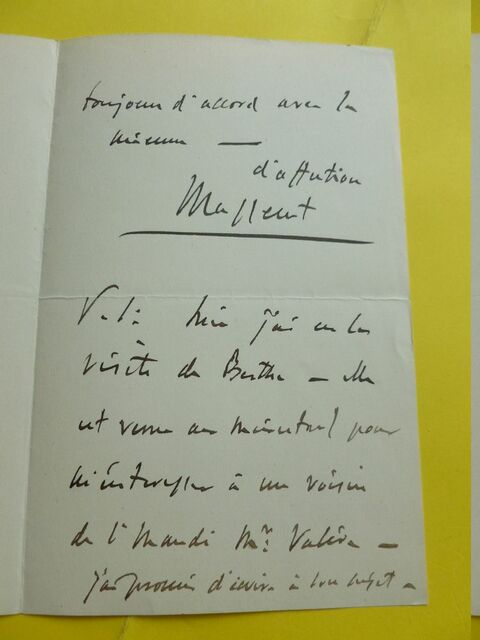 toujours d'accord avec la
mienne —
d'affection
Massenet
hier j'ai eu la
visite de Berthe — elle
est venue au Ménestrel pour
m'intéresser à un voisin
de l' Mr. Valère —
j'ai promis d'écrire à son sujet —